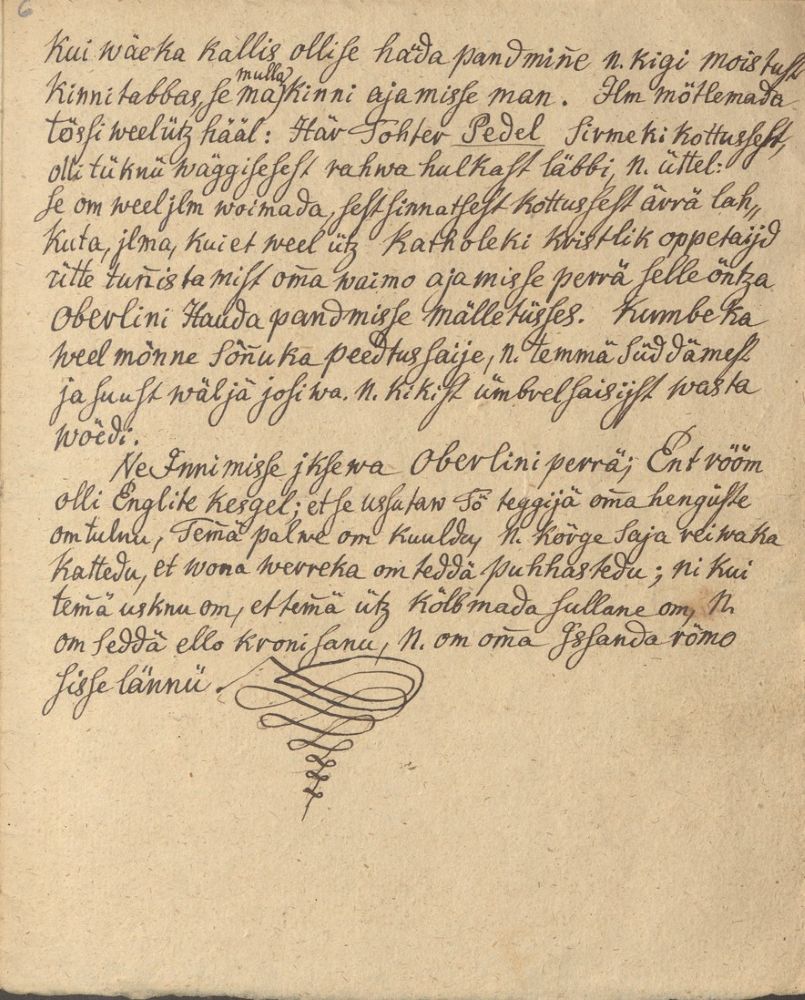 6
Kui wäeka kallis ollise haůda pandmiñe n. kigi moistust
kinnitabbas, se ma mulla kinni ajamisse man. Ilm mötlemada
tössi weel ütz hääl: Här Tohter Pedel Sirmeki kottussest,
olli tüknü wäggisesest rahwa hulkast läbbi, n. üttel:
se om weel jlm woimada, sest sinnatsest kottussest ärrä lah„
kuta, jlma, kui et weel ütz Katholeki kristlik oppetaijd
ütte tuñistamist om̃a waimo ajamisse perrä selle öntza
Oberlini Hauda pandmisse mälletüsses. Kumbe ka
weel mönne Söñuka peedtus saije, n. temmä Süddämest
ja suust wäljä josiwa. n. kikist ümbrelsaisijst wasta
woëdi.
Ne Innimisse jksewa Oberlini perrä; Ent rööm
olli Englite kesgel; et se ussutaw Tö teggijä om̃a hengüste
om tulnu, Tem̃ä palwe om kuuldu, n. körge Saja reiwaka
kattedu, et wona werreka om teddä puhhastedu; ni kui
tem̃ä usknu om, et tem̃ä ütz kölbmada sullane om, N.
om seddä ello kroni sanu, N. om om̃a Issanda römo
sisse lännü.